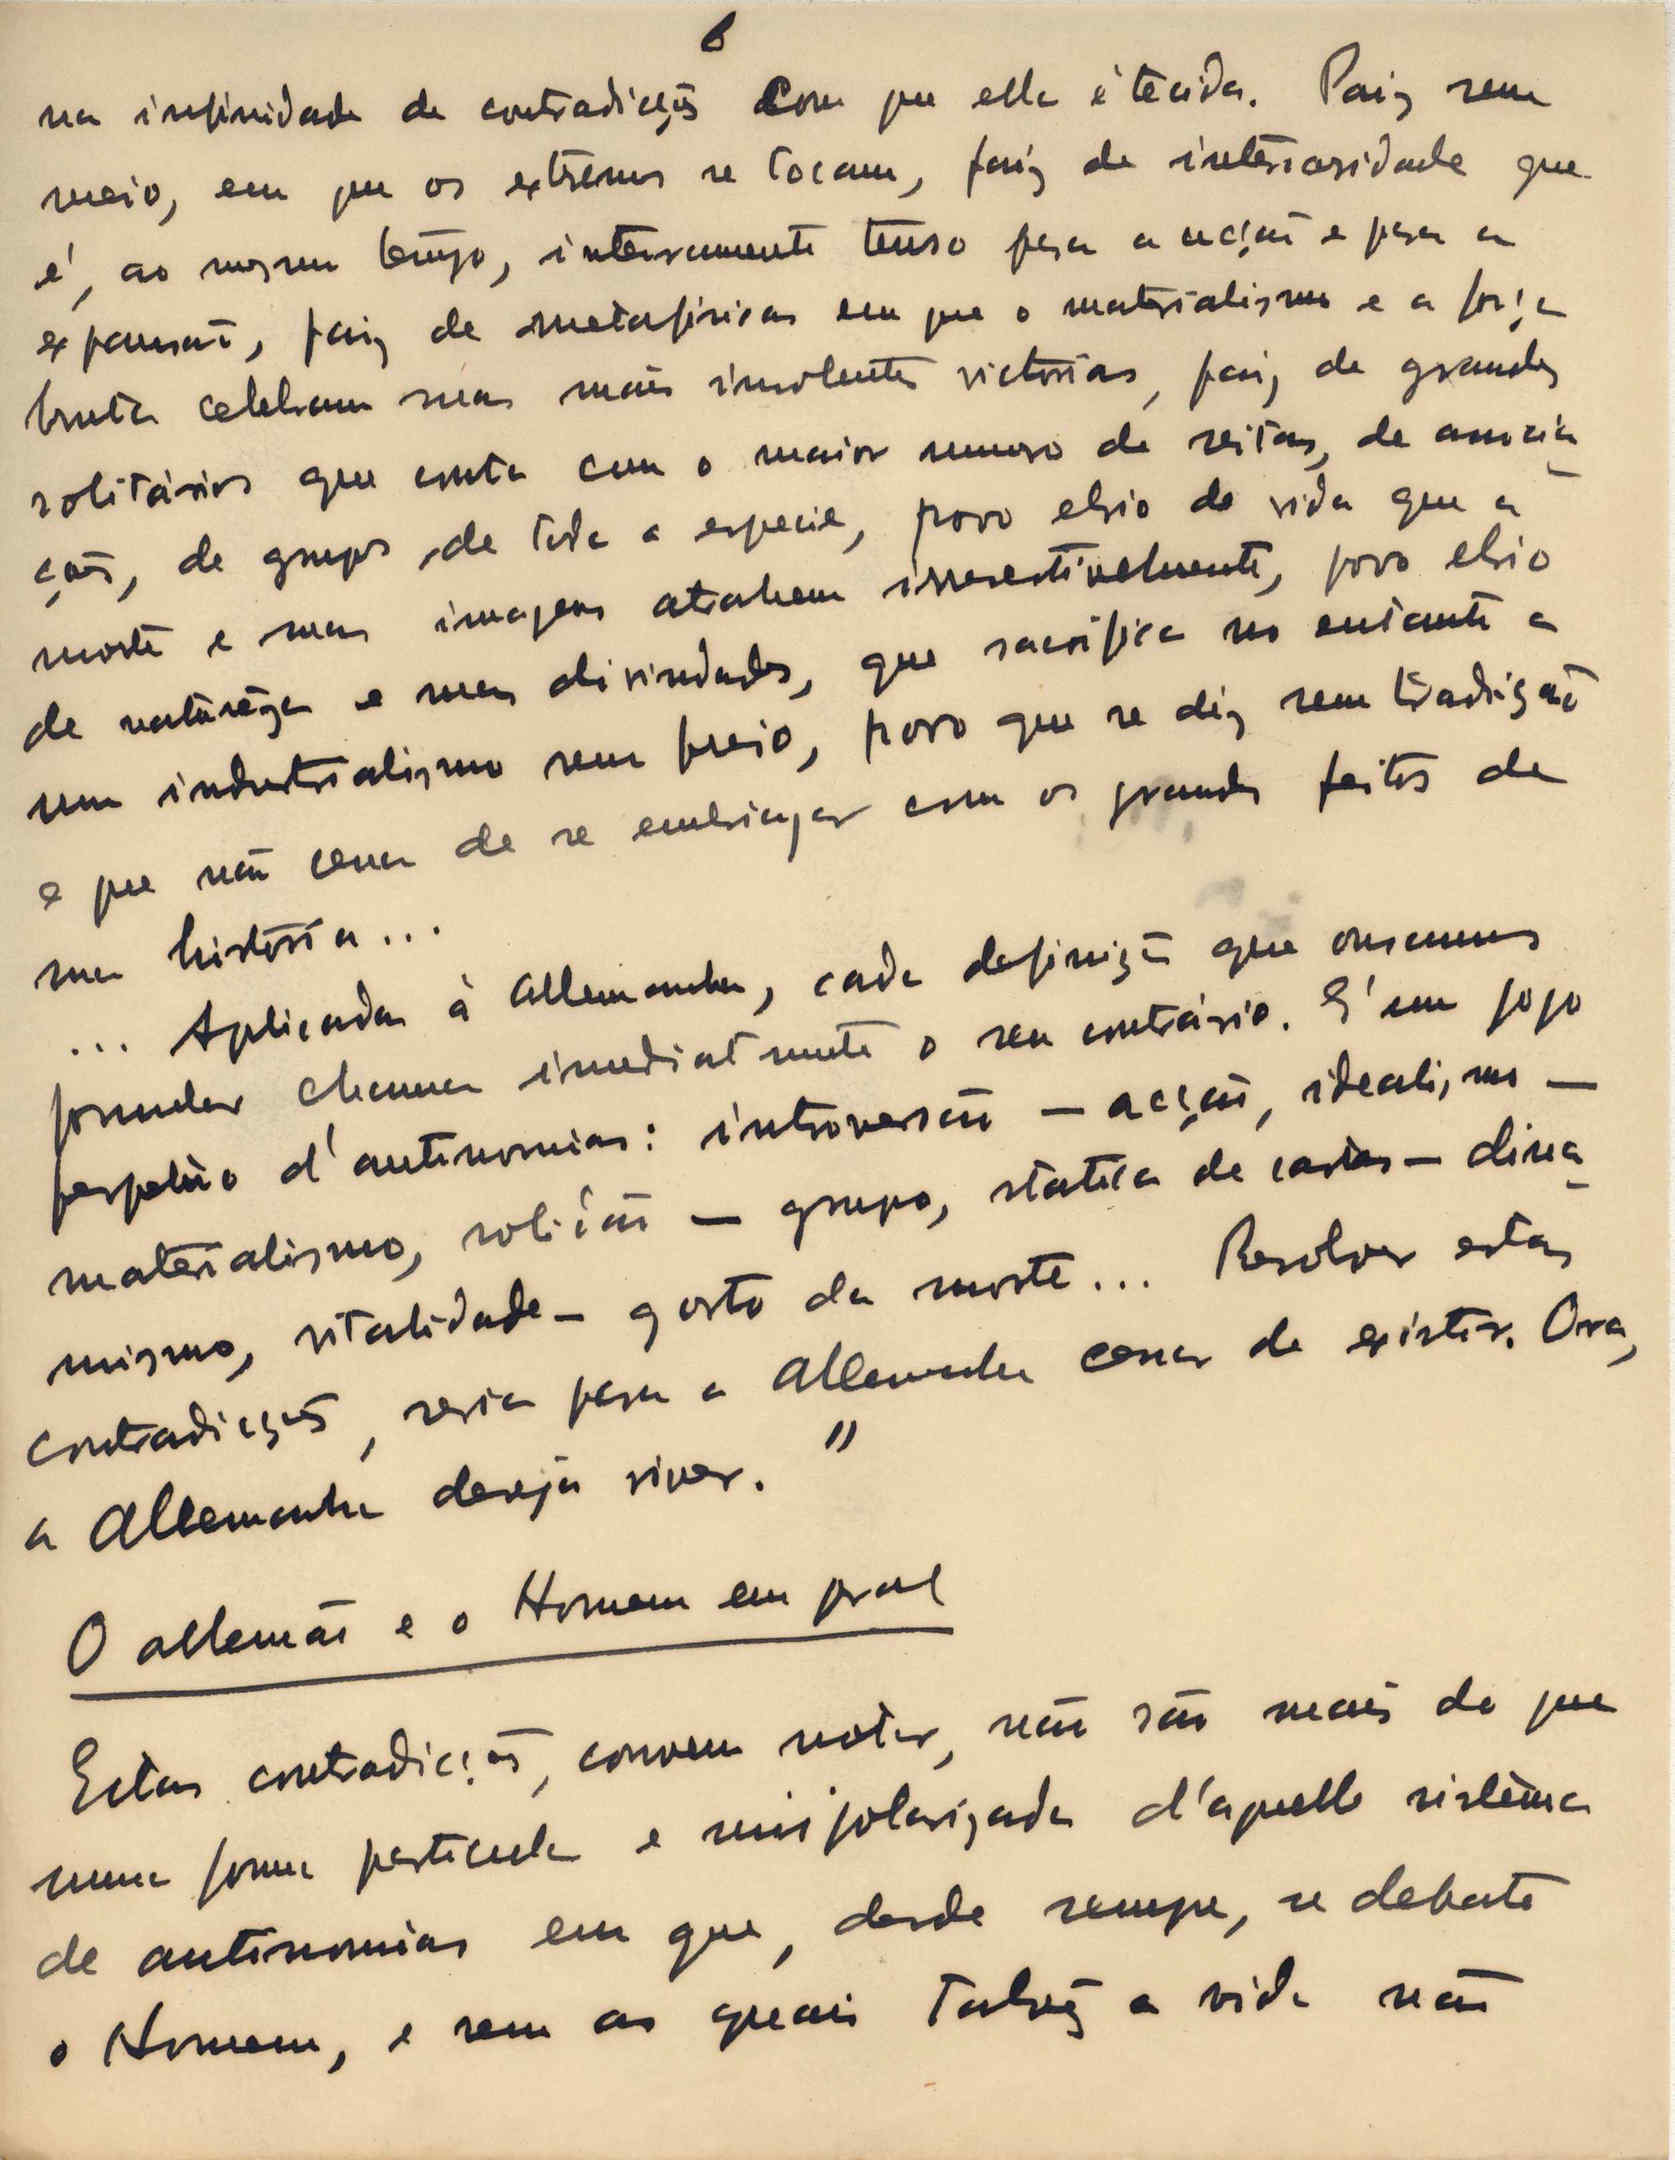 6
na infinidade de contradicções com que ella é tecida. Paiz sem
meio, em que os extremos se tocam, paiz de interioridade que
é, ao mesmo tempo, intensamente tenso para a acção e para a
expansão, paiz de metafisicas em que o materialismo e a força
bruta celebram suas mais insolentes victorias, paiz de grandes
solitários que conta com o maior numero de seitas, de associa
ções, de grupos de toda a especie, povo ebrio de vida que a
morte e suas imagens atrahem irresestivelmente, povo ebrio
de naturêza e suas divindades, que sacrifica no entanto a
um industrialismo sem freio, povo que se diz sem tradição
e que não cessa de se embriagar com os grandes feitos de
sua história...
... Aplicada á Allemanha, cada definição que ousamos
formular chama imediatmente o seu contrário. É um jogo
perpetuo d'antinomias: introversão — acção, idealismo —
materialismo, solidão — grupo, statica de castas — dina
mismo, vitalidade — gosto da morte... Resolver estas
contradicções, seria para a Allemanha cessar de existir. Ora,
a Allemanha deseja viver."
O allemão e o Homem em geral
Estas contradicções, convem notar, não são mais do que
uma forma particular e mais polarizada d'aquelle sistêma
de antinomias em que, desde sempre, se debate
o Homem, e sem as quais talvez a vida não